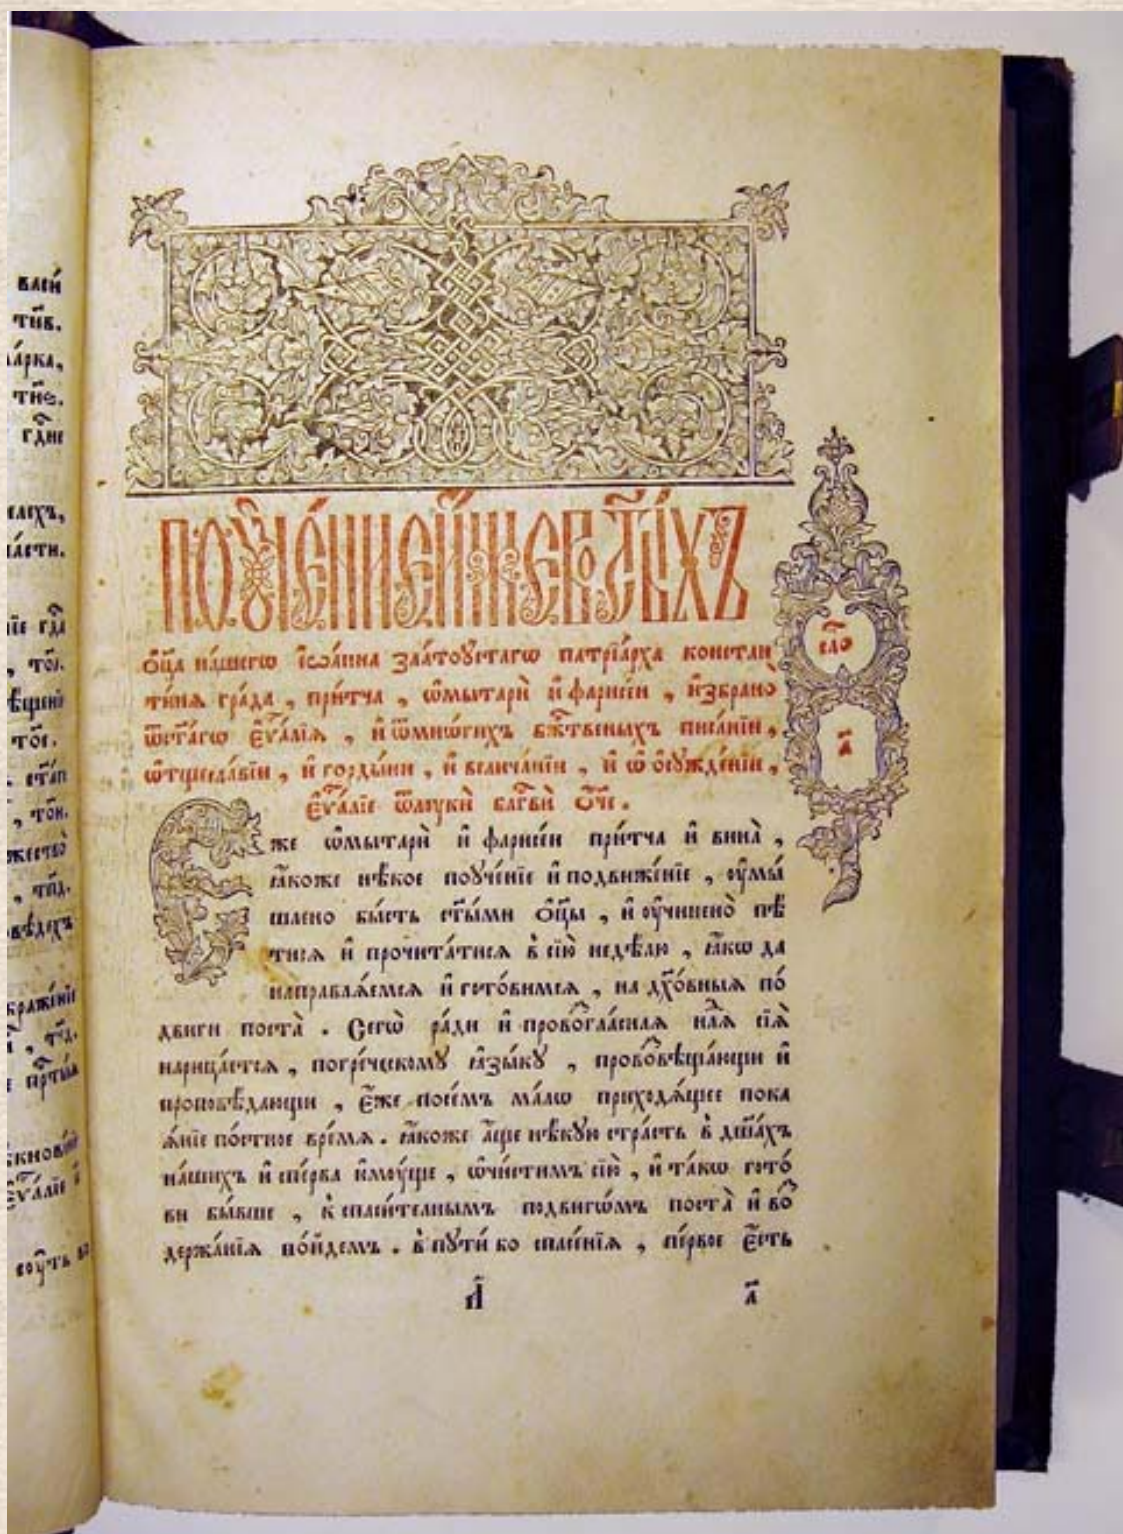 васи́
ти́в.
ма́рка,
ти́е.
гд҃не
ꙗ҆́сти.
то́і.
то́е.
, то́и.
, ті҃д.
ᲂу҆чє́нїе и҆́же во ст҃ы́хъ
ѻ҆ц҃а на́шегѡ і҆ѡа́нна златоꙋстагѡ патрїа́рха констан
ти́нѧ гра́да , при́тча , ѡ҆мытарѝ и҆ фарисе́и , и҆збрано̀
ѿст҃а́гѡ є҆ѵ҃а́лїѧ , и҆ ѿмно́гихъ бж҃твеныхъ писа́нїи ,
ѡ҆тщесла́вїи , и҆ горды́ни , и҆ велича́нїи , и҆ ѡ҆ ѻ҆сꙋжде́нїи ,
є҆ѵ҃а́лїе ѿлꙋкѝ блг҃вѝ ѻ҆́ч҃е .
сло҃
а҃
Є҆же ѡ҆мытарѝ и҆ фарисе́и при́тча и҆ вина̀ ,
ꙗ҆́коже нѣ́кое поꙋче́нїе и҆ подвиже́нїе , ᲂу҆мы́
шлено бы́сть ст҃ы́ми ѻ҆ц҃ы̀ , и҆ ᲂу҆чинено̀ пѣ́
тисѧ и҆ прочита́тисѧ в сїю̀ недѣ́лю , ꙗ҆́кѡ да
направлѧ́емсѧ и҆ гото́вимсѧ , на дх҃о́вныѧ по́
двиги поста̀ . Сегѡ̀ ра́ди и҆ провогла́снаѧ нл҃ѧ сїѧ̀
нарица́етсѧ , погре́ческомꙋ ꙗ҆зы́кꙋ , прововѣща́ющи и҆
проповѣ́дающи , є҆́же посе́мъ ма́лѡ приходѧ́щее пока
ѧ́нїе по́стное вре́мѧ . ꙗ҆́коже а҆́ще нѣ́кꙋю стра́сть в дш҃а́хъ
на́шихъ и҆ спе́рва и҆мꙋ́ще , ѡ҆чи́стимъ сїю̀ , и҆ та́кѡ гото́
ви бы́вше , к спаси́телнымъ по́двигѡмъ поста̀ и҆ во
держа́нїѧ во́йдемъ . в пꙋти́ ко спасе́нїѧ , пе́рвое є҆́сть
л҃
а҃